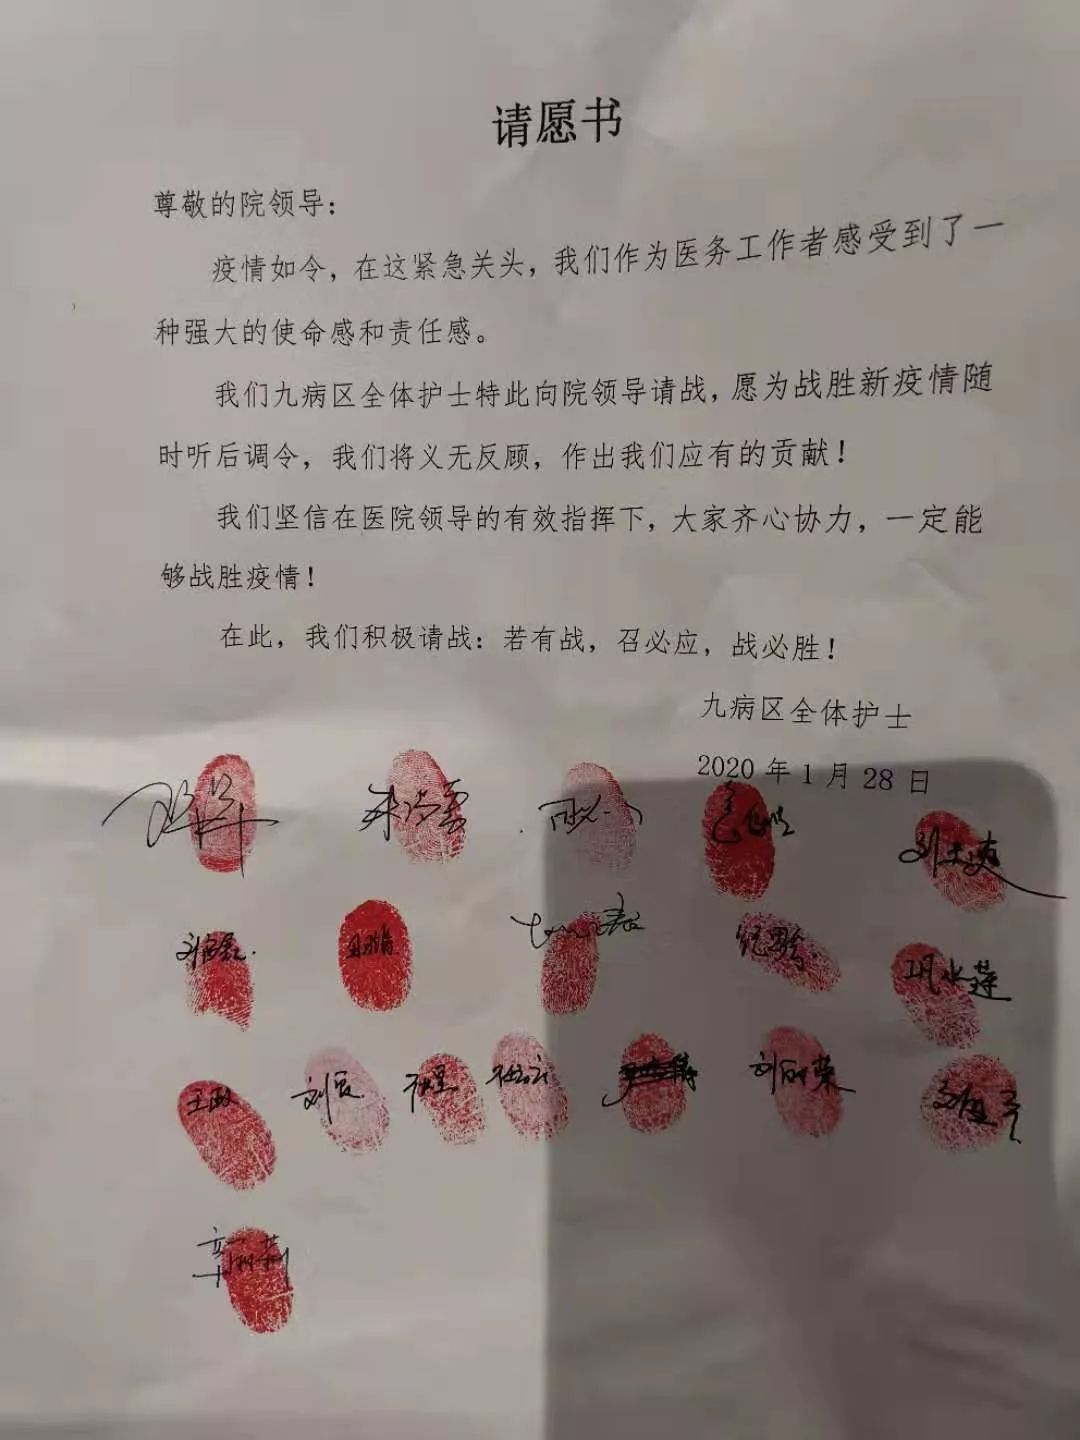 请愿书
尊敬的院领导：
疫情如令，在这紧急关头，我们作为医务工作者感受到了一
种强大的使命感和责任感。
我们九病区全体护士特此向院领导请战，愿为战胜新疫情随
时听后调令，我们将义无反顾，作出我们应有的贡献！
我们坚信在医院领导的有效指挥下，大家齐心协力，一定能
够战胜疫情！
在此，我们积极请战：若有战，召必应，战必胜！
九病区全体护士
2020 年 1 月 28 日
纪黔
巩水莲
王政
刘辰
刘丽荣